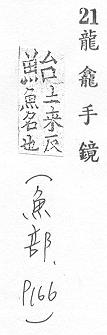 21 龍龕手鏡
鮐土來反
魚名也
(魚部, P166)